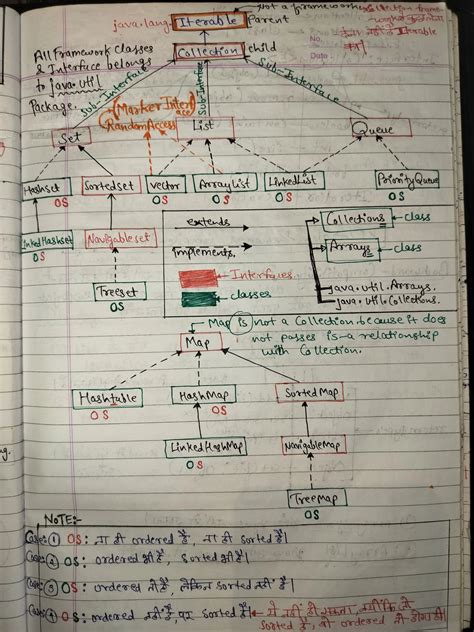 Not a framework
java.lang. Iterable Parent
All Framework Classes
& Interface belongs
to java.util
Package.
Collection child
Sub-Interface
Sub-Interface
Sub-Interface
(Marker Interface)
RandomAccess
Set List Queue
Hashset Sortedset Vector ArrayList LinkedList PriorityQueue
OS OS OS OS OS
LinkedHashset Navigableset
OS
Treeset
OS
extends
implements
Interfaces
classes
Collections class
Arrays class
java.util.Arrays.
java.util.Collections.
Map is not a Collection because it does
not passes is-a relationship
with Collection.
Map
Hashtable HashMap SortedMap
OS OS
LinkedHashMap NavigableMap
OS
TreeMap
OS
NOTE:-
Case: ① OS: ना ही ordered है, ना ही sorted है।
Case: ② OS: ordered भी है, sorted भी है।
Case: ③ OS: ordered तो है, लेकिन sorted नहीं है।
Case: ④ OS: ordered नहीं है, पर sorted है। ये नहीं हो सकता, क्योंकि जो
sorted है, वो ordered भी होगा ही।